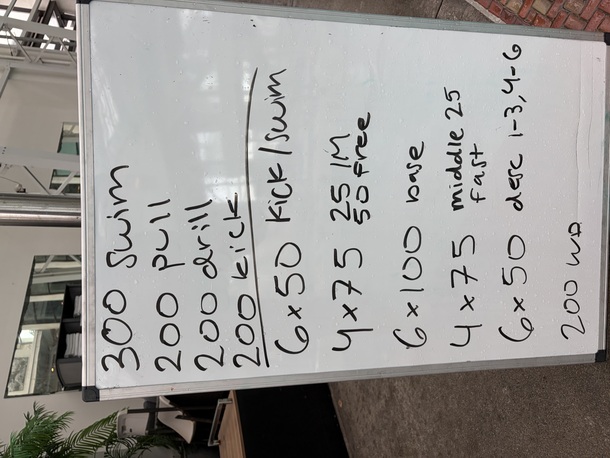 300 swim
200 pull
200 drill
200 kick
6x50 kick/swim
4x75 25 IM
50 free
6x100 base
4x75 middle 25
fast
6x50 desc 1-3, 4-6
200 WD